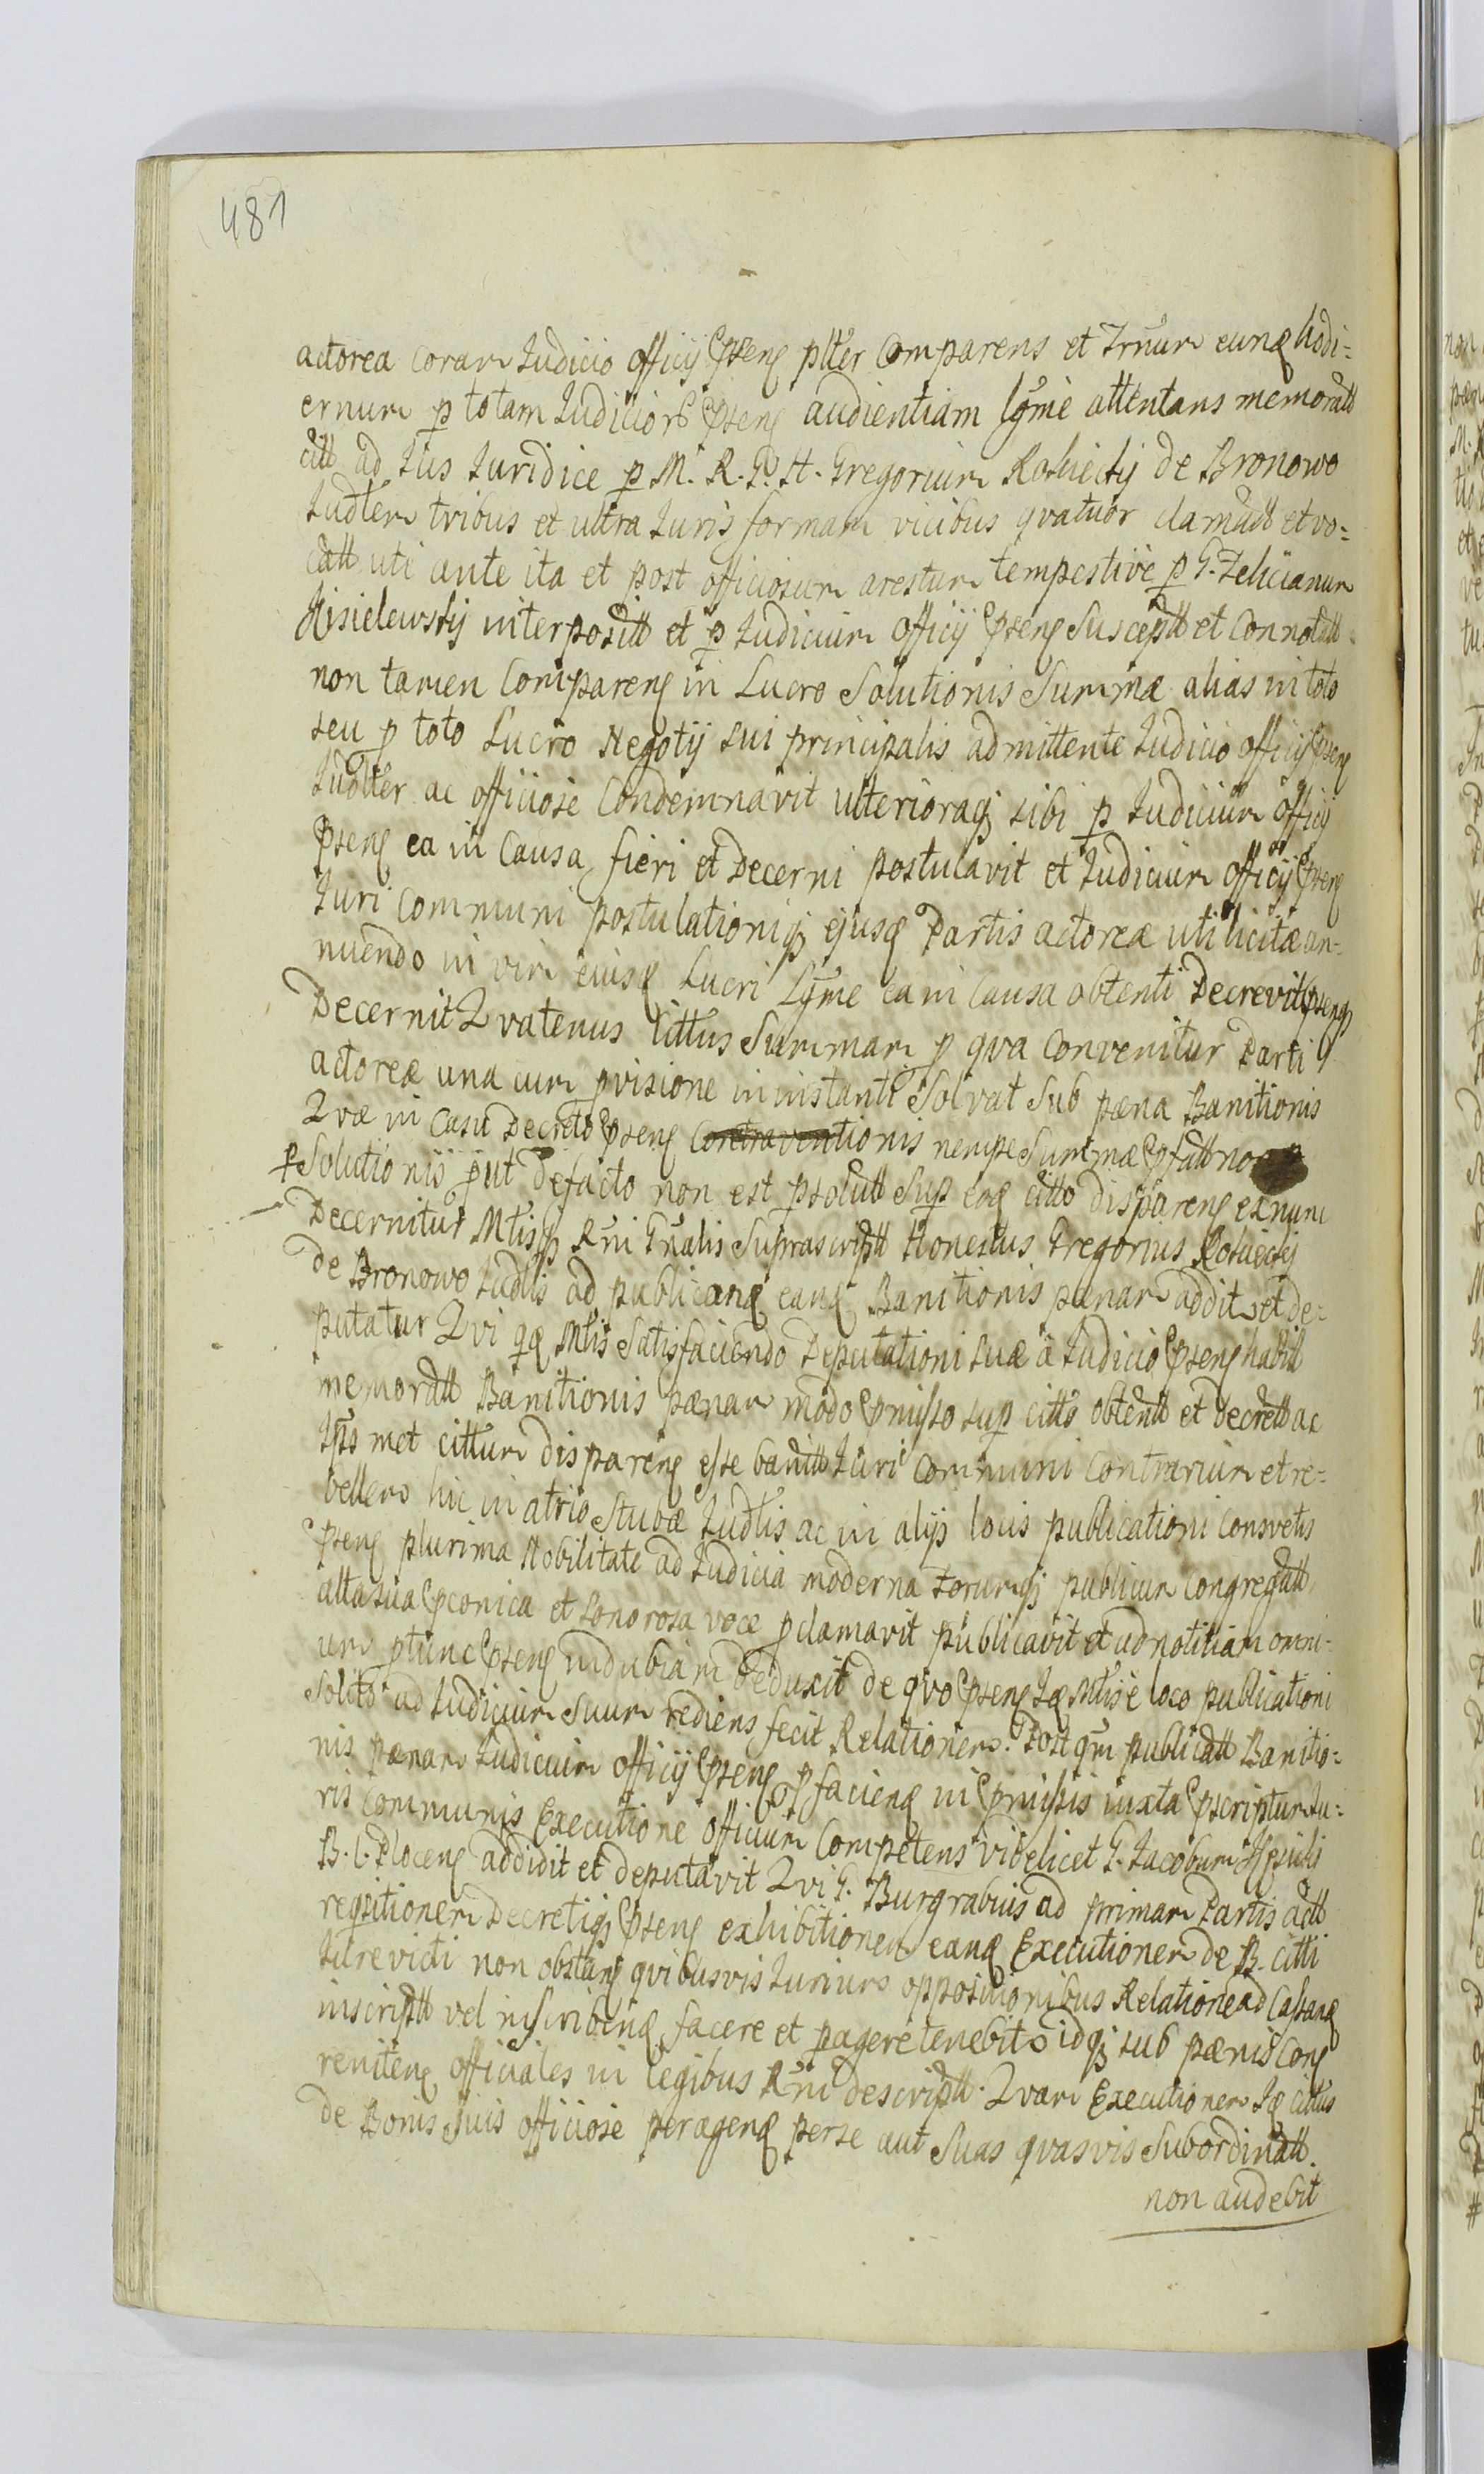 481
actorea coram Judicio Officij pseng pltter Comparens et Trnum eunq hodi=
ernum p totam Judiciorq pseng audientiam lgme attentans memoratt
citt ad Jus Juridice p M. R. G. H. Gregorium Rokiecky de Bronowo
Judlem tribus et ultra Juris formam vicibus qvatuor clamatt et vo=
catt uti ante ita et post officiosum arestum tempestive p G. Felicianum
Kisielewsky interpositt et p Judicium Officij pseng Susceptt et Connotatt
non tamen Compareng in Lucro Solutionis Summæ alias in toto
seu p toto Lucro Negotij sui principalis admittente Judicio Officij pseng
Judlter ac officiose Condemnavit ulterioraq sibi p Judicium Officij
pseng ea in Causa fieri et Decerni postulavit et Judicium Officij pseng
Juri Communi postulationiq ejusq Partis actoreæ uti licitæ an=
nuendo in vim eiusq Lucri Lgme ea in Causa obtenti Decrevit psenq
Decernit Qvatenus Cittus Summam p qva Convenitur Parti
actoreæ una cum pvisione in instanti Solvat Sub pæna Banitionis
Qvæ in Casu Decreto pseng Contraventionis nempe Summæ pfatt non
Solutionis put defacto non est psolutt Sup enq citto dispareng ex nunc
Decernitur Mtisq Rni Gnalis Suprascriptt Honestus Gregorius Rokiecky
de Bronowo Judlis ad publicanq eanq Banitionis pænam additur et de=
putatur Qvi qq Mtis Satisfaciendo Deputationi suæ a Judicio pseng habitt
memoratt Banitionis pænam modo pmisso sup citto obtentt et decrett ac
Ipsmet cittum dispareng esse banitt Juri Communi Contrarium et re=
bellem hic in atrio Stubæ Judlis ac in alijs locis publicationi Consvetis
pseng plurima Nobilitate ad Judicia moderna Forumq publicum Congregatt
alta sua pconica et Sonorosa voce pclamavit publicavit et ad notitiam omni=
um ptunc pseng indubiam Deduxit de qvo pseng Iq Mtis e loco publicationi
Solito ad Judicium Suum rediens fecit Relationem. Post qm publicatt Banitio=
nis pænam Judicium Officij pseng p facienq in pmissis iuxta pscriptum Ju=
ris Communis Executione Officium Competens videlicet G. Jacobum
B. C. Ploceng addidit et deputavit Qvi G. Burgrabius ad primam Partis actt
reqsitionem Decretiq pseng exhibitionem eanq Executionem de B. citti
Jure victi non obstang qvibusvis Jurium oppositionibus Relationead Cassanq
inscriptt vel inscribenq facere et pagere tenebitr idq sub pænis Cong
reniteng officiales in legibus Rni descriptt. Qvam Executionem Iq cittus
de Bonis Suis officiose peragenq perse aut Suas qvasvis Subordinatt.
non audebit